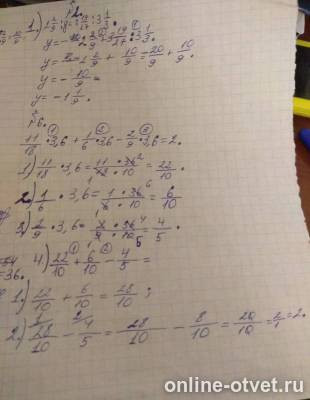 №2.
1.) 2 2/9 : y = 3 19/27 : 3 1/3.
y = -2 2/9 + 3 19/27 : 3 1/3.
y = -2 2/9 + 10/9 = -20/9 + 10/9.
y = -10/9 =
y = -1 1/9.
№6.
11/18 · 3,6 + 1/6 · 3,6 - 2/9 · 3,6 = 2.
1) 11/18 · 3,6 = 11 · 36/18 · 10 = 22/10.
2.) 1/6 · 3,6 = 1 · 36/6 · 10 = 6/10
3) 2/9 · 3,6 = 2 · 36/9 · 10 = 4/5.
4.) 22/10 + 6/10 - 4/5 =
= 36.
1.) 22/10 + 6/10 = 28/10 ;
2.) 28/10 - 4/5 = 28/10 - 8/10 = 20/10 = 2/1 = 2.
online-otvet.ru